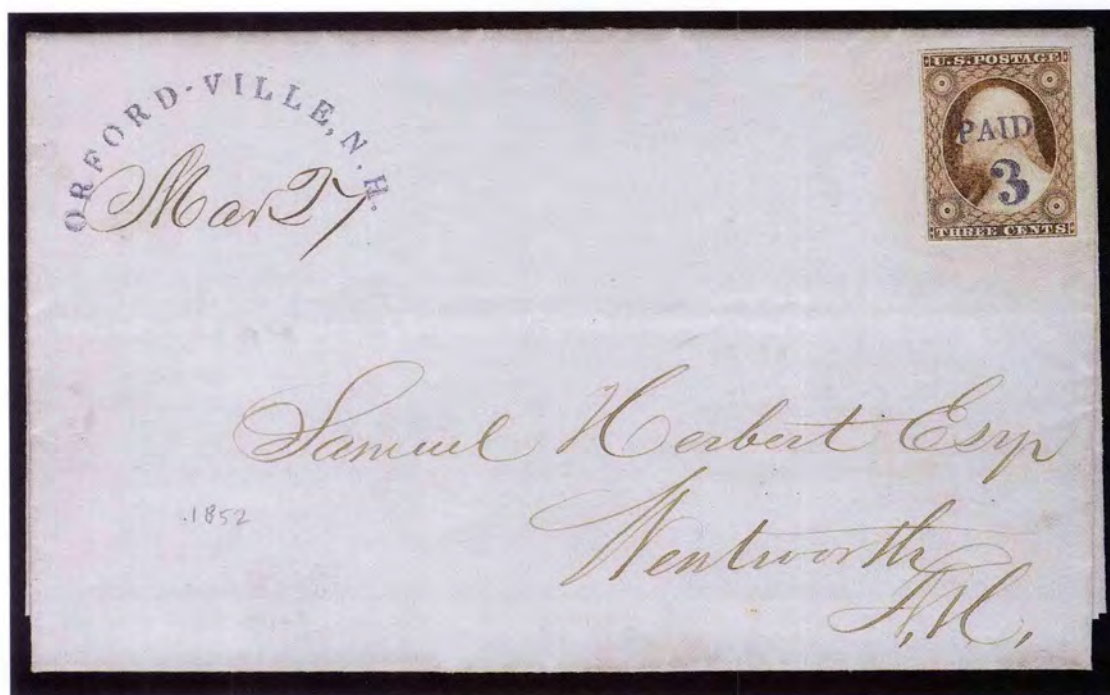 ORFORD-VILLE, N.H.
Mar 27
U.S. POSTAGE
PAID
3
THREE CENTS
Samuel Herbert Esqr
Wentworth
N.H.
.1852